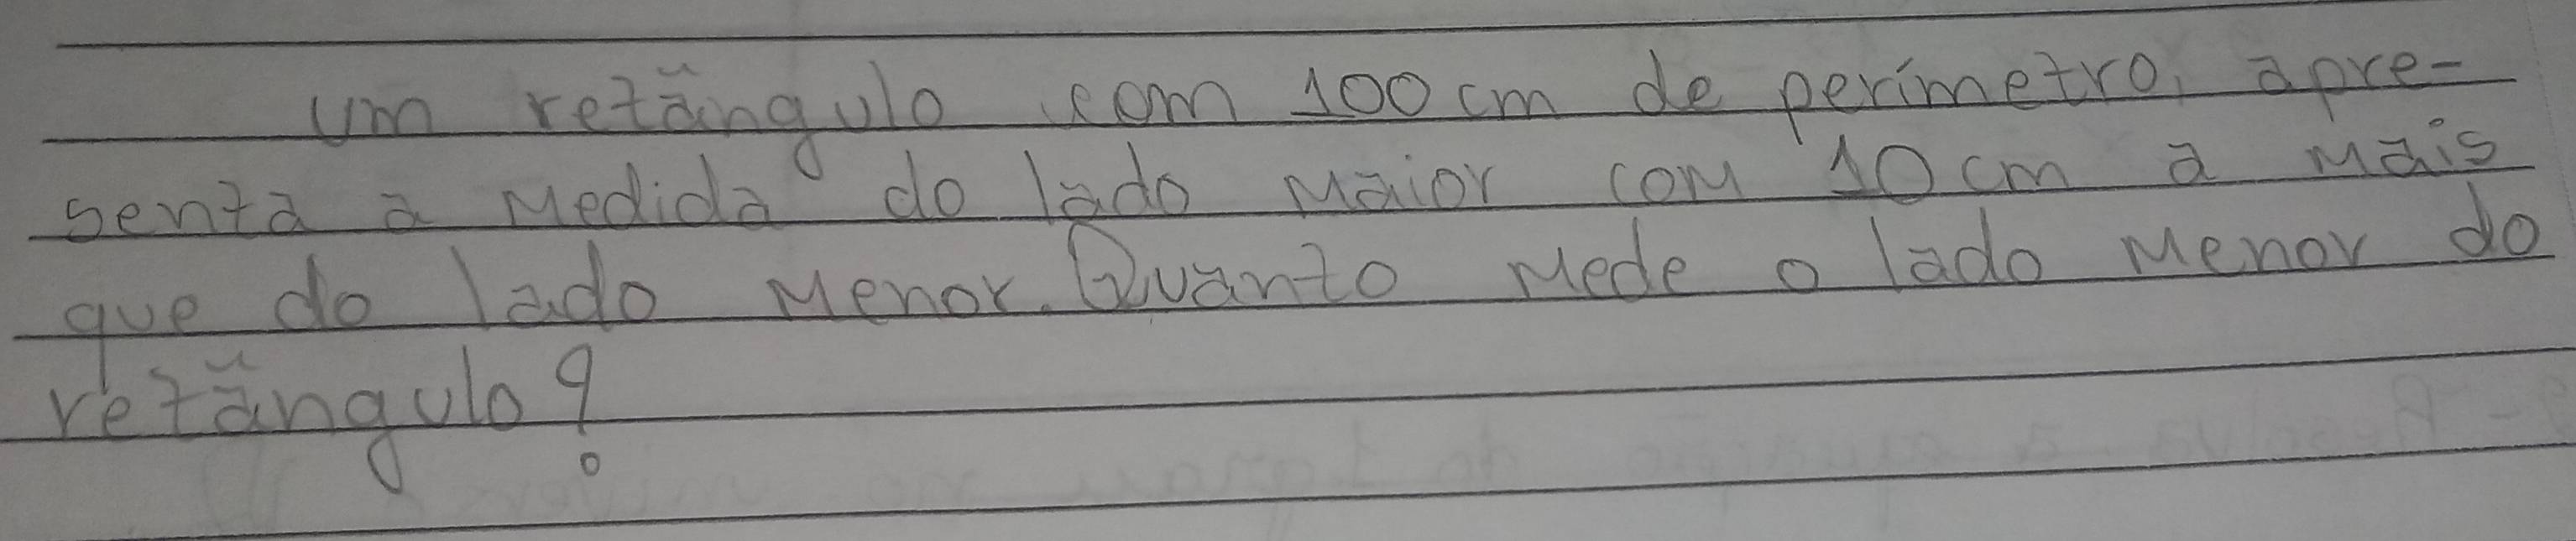 Um retângulo com 100 cm de perímetro, apre-
senta a medida do lado maior com 10 cm a mais
que do lado menor. Quanto mede o lado menor do
retângulo?